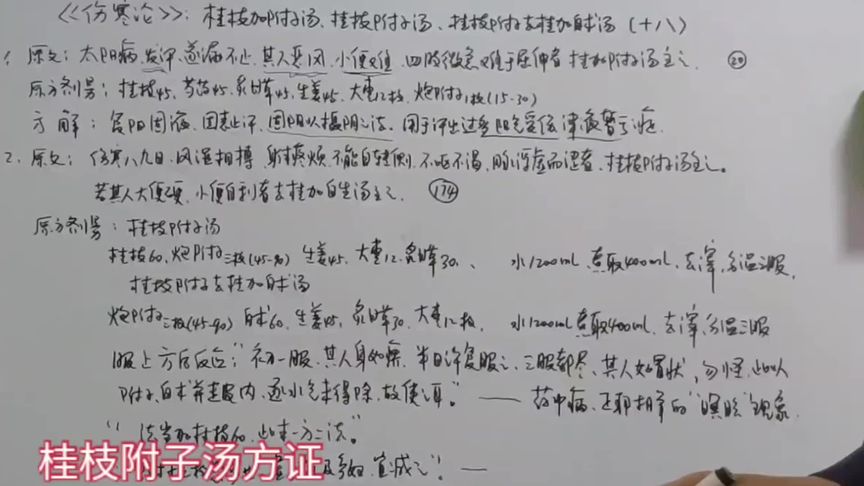 《伤寒论》：桂枝加附子汤、桂枝附子汤、桂枝附子去桂加白术汤（十八）
1、原文：太阳病，发汗，遂漏不止，其人恶风，小便难，四肢微急，难于屈伸者，桂加附汤主之。⑳
原方剂量：桂枝45、芍药45、炙甘草45、生姜45、大枣12枚、炮附1枚(15-30)
方解：复阳固液，固表止汗，固阳以摄阴之法。用于汗出过多阳气受伤津液暂亏证
2、原文：伤寒八九日，风湿相搏，身体疼烦，不能自转侧，不呕不渴，脉浮虚而涩者，桂枝附子汤主之。
若其人大便硬，小便自利者去桂加白术汤主之。(174)
原方剂量：桂枝附子汤
桂枝60、炮附子三枚(45-90) 生姜45、大枣12、炙甘草30、 水1200ml，煮取400ml，去滓，分温三服，
桂枝附子去桂加白术汤
炮附子三枚(45-90) 白术60、生姜45、炙甘草30、大枣12枚、 水1200ml煮取400ml，去滓，分温三服
服上方后反应："初一服，其人身如痹，半日许复服之，三服都尽，其人如冒状，勿怪，此以
附子、白术并走皮内，逐水气未得除，故使之耳。" —— 药中病，正邪相争的"瞑眩"现象
"法当加桂枝60，此本一方二法。"
宜减之"。——
桂枝附子汤方证